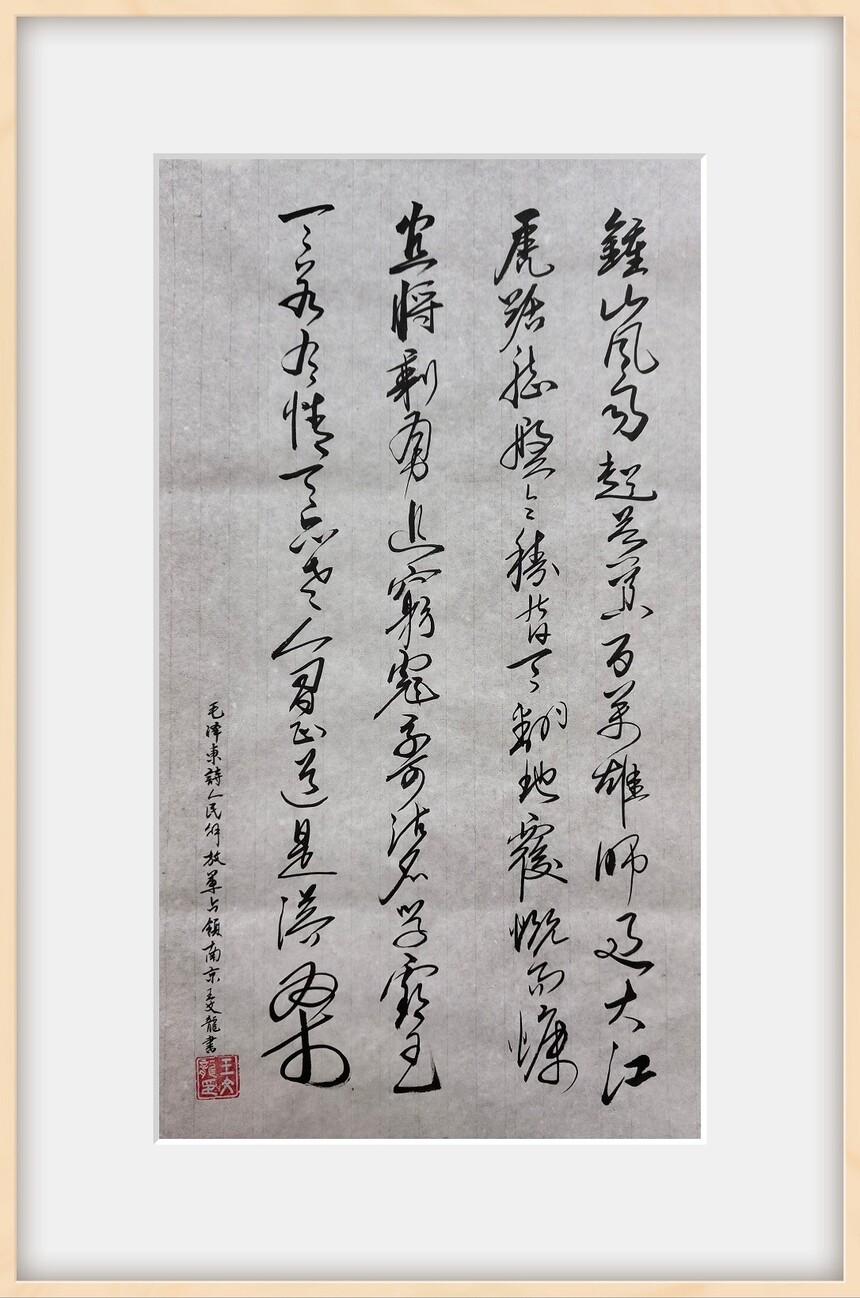 鍾山風雨起蒼黃百萬雄師過大江
虎踞龍盤今勝昔天翻地覆慨而慷
宜將剩勇追窮寇不可沽名學霸王
天若有情天亦老人間正道是滄桑
毛澤東詩人民解放軍占領南京王文龍書
王文龍印